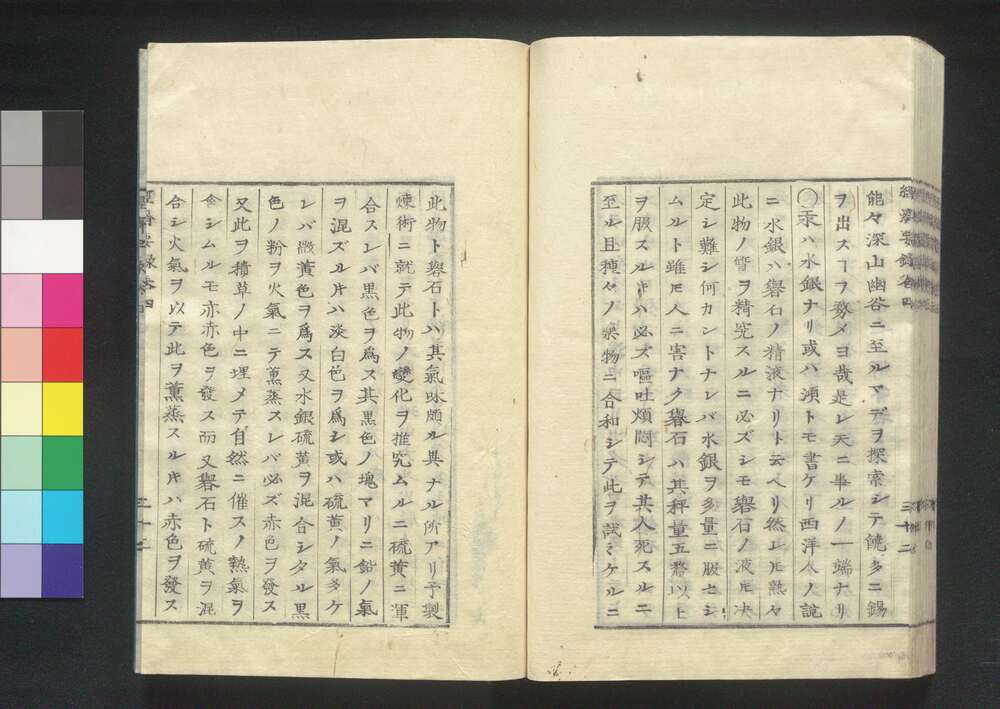 能々深山幽谷ニ至ルマデヲ探索シテ饒多ニ錫
ヲ出スヿヲ務メヨ哉是レ天ニ事ルノ一端ナリ
〇汞ハ水銀ナリ或ハ澒トモ書ケリ西洋人ノ說
ニ水銀ハ礜石ノ精液ナリト云ヘリ然レ𪜈熟々
此物ノ質ヲ精究スルニ必ズシモ礜石ノ液𪜈决
定シ難シ何カントナレバ水銀ヲ多量ニ服セシ
ムルト雖𪜈人ニ害ナク礜石ハ其秤量五釐以上
ヲ服スルキハ必ズ嘔吐煩悶シテ其人死スルニ
至ル且種々ノ藥物ニ合和シテ此ヲ試ミケルニ
經濟要錄卷四
三十二
此物ト礜石トハ其氣味頗ル異ナル所アリ予製
煉術ニ就テ此物ノ變化ヲ推究ムルニ硫黄ニ渾
合スレバ黒色ヲ爲ス其黒色ノ塊マリニ鉛ノ氣
ヲ混ズル片ハ淡白色ヲ爲シ或ハ硫黄ノ氣多ケ
レバ微黄色ヲ爲ス又水銀硫黄ヲ混合シタル黒
色ノ粉ヲ火氣ニテ薰蒸スレバ必ズ赤色ヲ發ス
又此ヲ積草ノ中ニ埋メテ自然ニ催スノ熱氣ヲ
含シムルモ亦赤色ヲ發ス而又礜石ト硫黄ヲ混
合シ火氣ヲ以テ此ヲ薰蒸スル片ハ赤色ヲ發ス